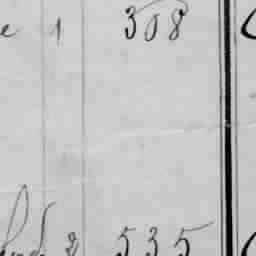 e 1 308
8 535